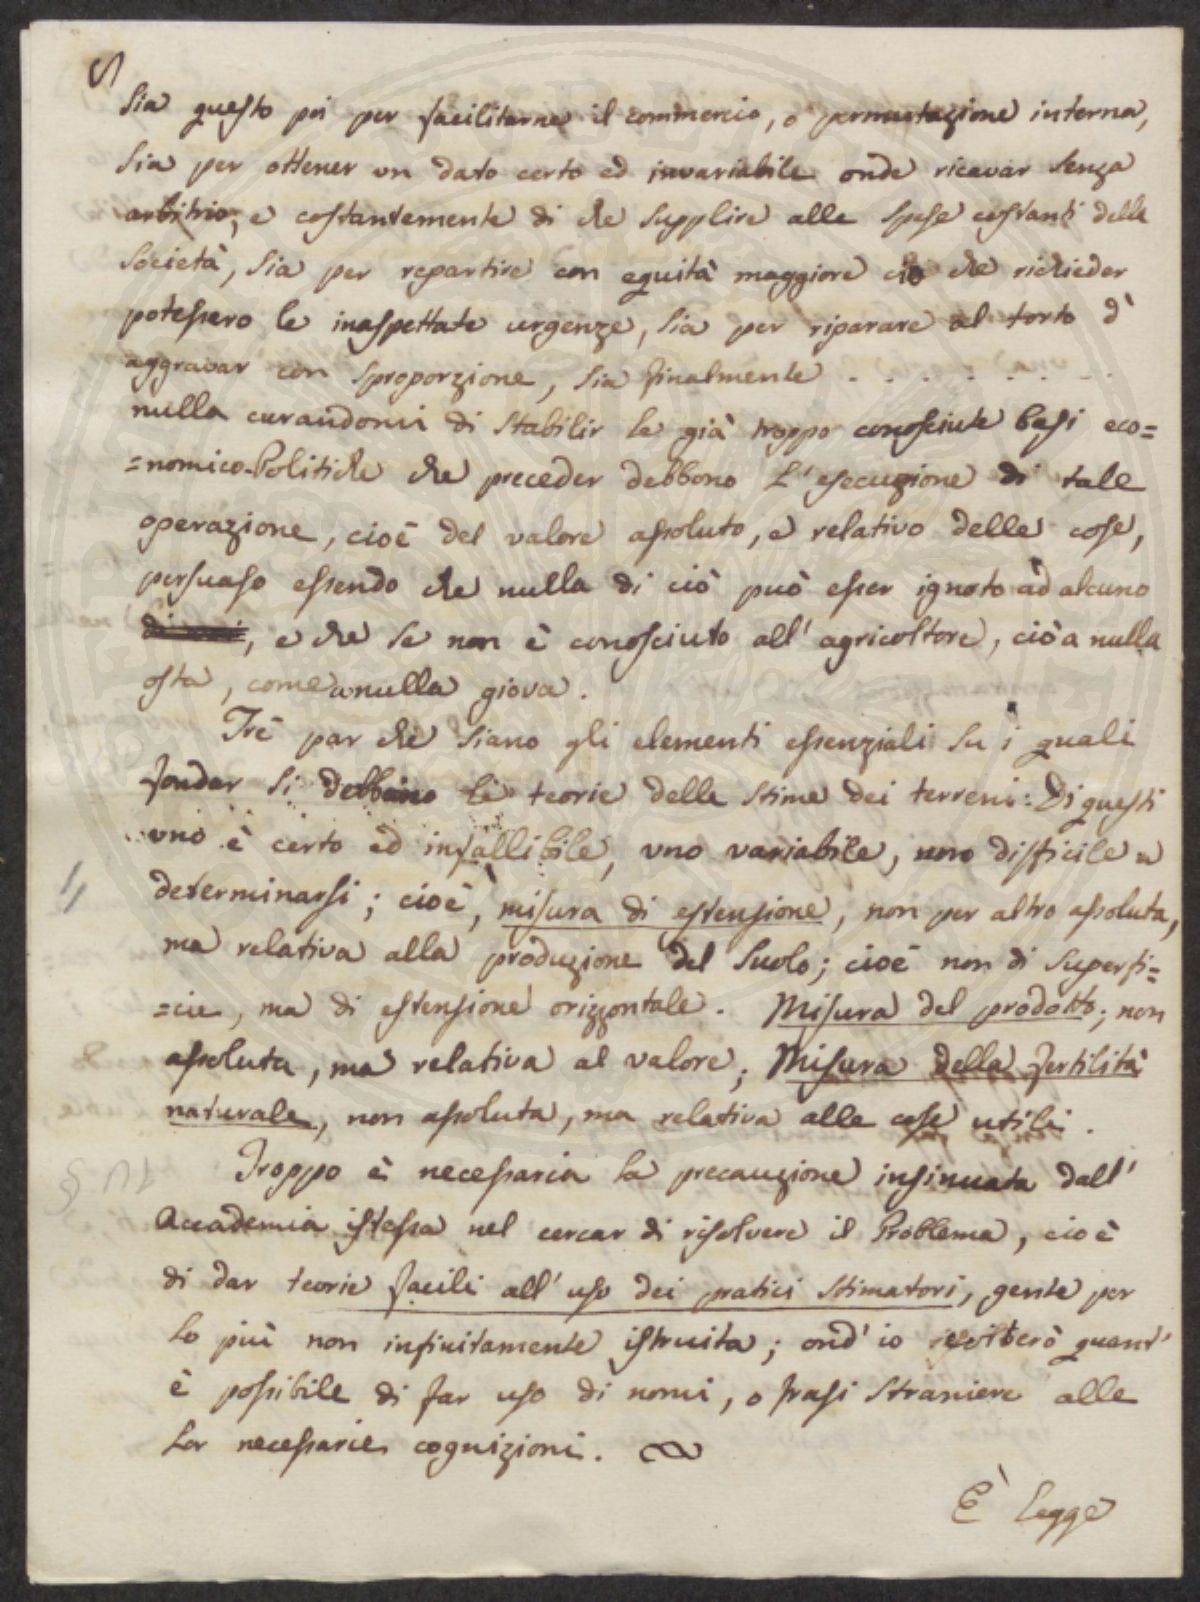 Sia questo poi per facilitarne il commercio, o permutazione interna,
Sia per ottener un dato certo ed invariabile onde ricavar senza
arbitrio, e costantemente di che supplire alle spese costanti della
Società, Sia per repartire con equità maggiore ciò che richieder
potessero le inaspettate urgenze, Sia per riparare al torto d'
aggravar con sproporzione, Sia finalmente . . . . . . . . .
nulla curandomi di stabilir le già troppo conosciute basi eco=
=nomico-Politiche che preceder debbono l'esecuzione di tale
operazione, cioè del valore assoluto, e relativo delle cose,
persuaso essendo che nulla di ciò può esser ignoto ad alcuno
, e che se non è conosciuto all'agricoltore, ciò a nulla
osta, come a nulla giova.
Trè par che siano gli elementi essenziali su i quali
fondar si debbino le teorie delle stime dei terreni: Di questi
uno è certo ed infallibile, uno variabile, uno difficile a
determinarsi; cioè, misura di estensione, non per altro assoluta,
ma relativa alla produzione del suolo; cioè non di superfi=
=cie, ma di estensione orizzontale. Misura del prodotto; non
assoluta, ma relativa al valore; Misura della fertilità
naturale, non assoluta, ma relativa alle cose utili.
Troppo è necessaria la precauzione insinuata dall'
Accademia istessa nel cercar di risolvere il Problema, cioè
di dar teorie facili all'uso dei pratici Stimatori, gente per
lo più non infinitamente istruita; ond'io eviterò quant'
è possibile di far uso di nomi, o frasi straniere alle
lor necessarie cognizioni.
È legge